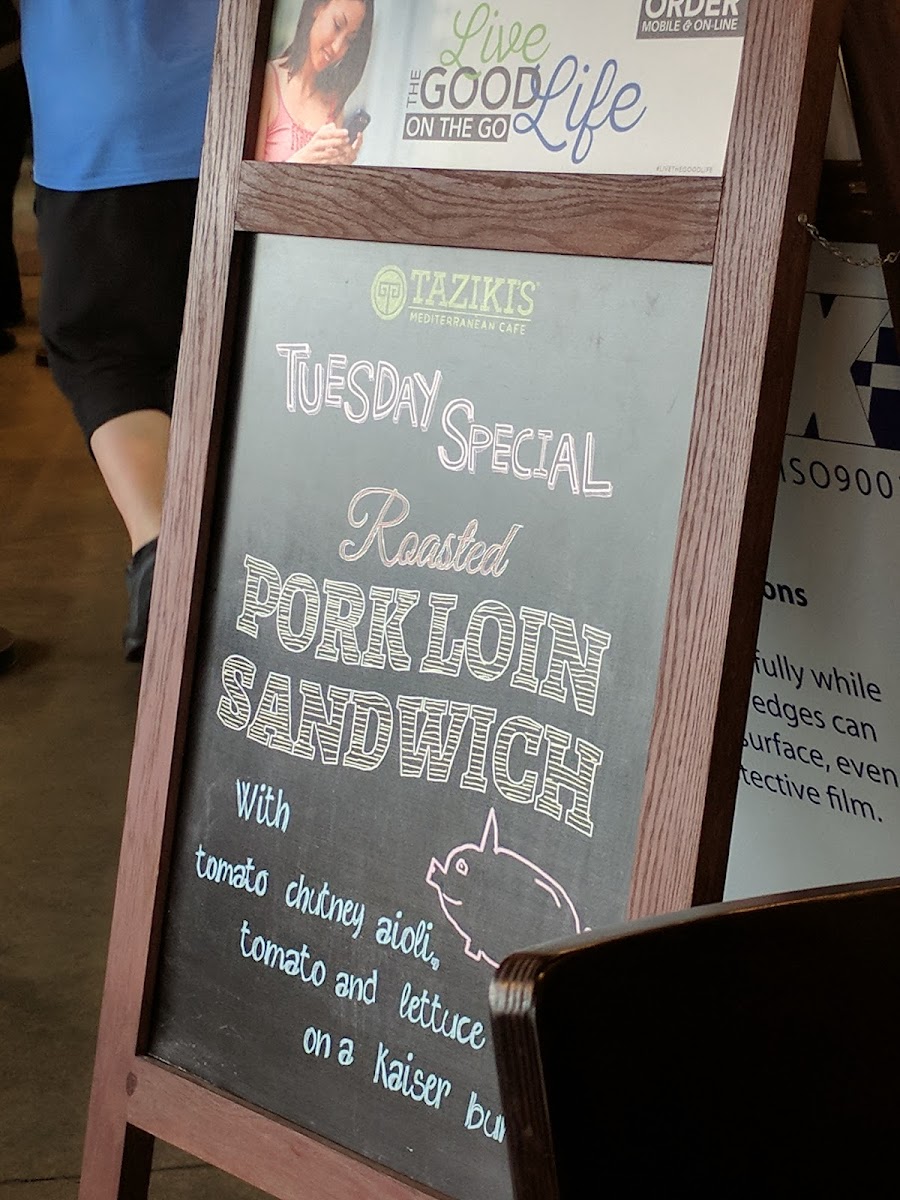 ORDER
MOBILE & ON-LINE
Live
THE GOOD Life
ON THE GO
#LIVETHEGOODLIFE
TAZIKI'S
MEDITERRANEAN CAFE
TUESDAY SPECIAL
Roasted
PORK LOIN
SANDWICH
With
tomato chutney aioli,
tomato and lettuce
on a Kaiser
X
ISO9001
ons
fully while
edges can
surface, even
tective film.